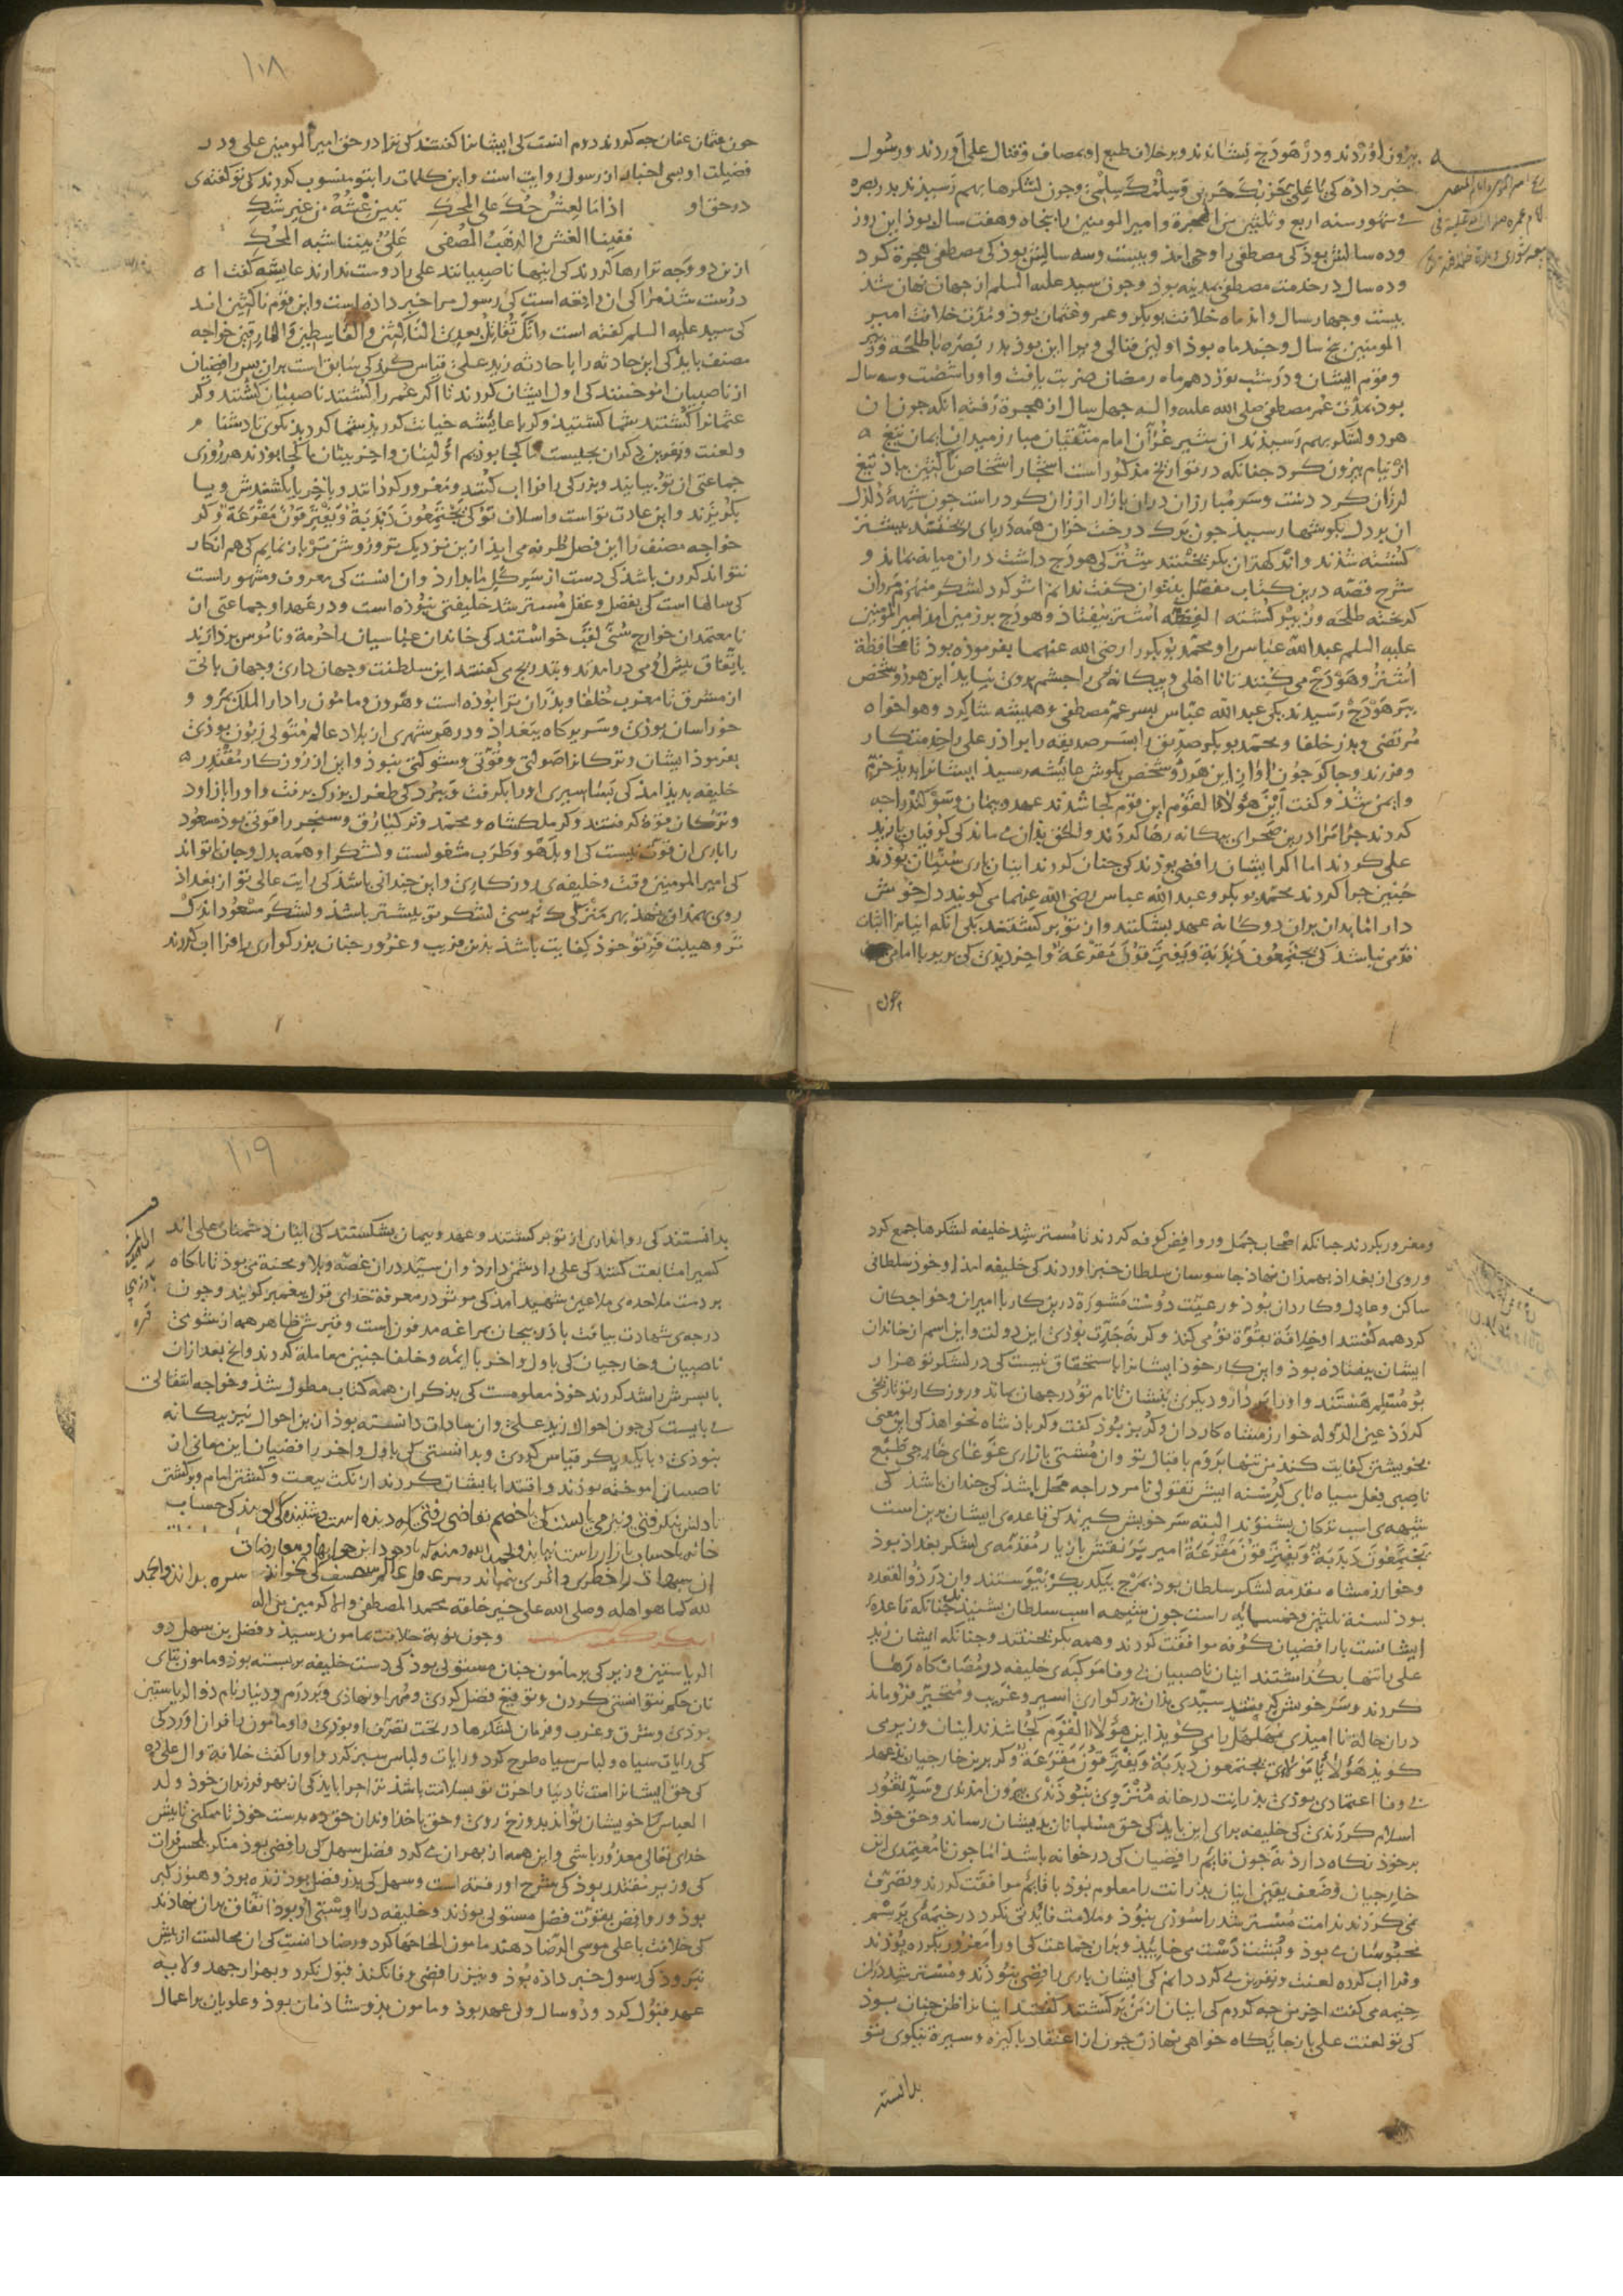 بیرون آوردند و در هودج نشاندند و بر خلاف طبع او بمصاف و قتال علی آوردند و رسول
خبر داده کی یا علی حَربُکَ حَربی و سِلمُکَ سِلمی و چون لشکرها بهم رسیدند بدر بصره
فی شهور سنه اربع و ثلثین من الهجرة و امیرالمومنین را پنجاه و هفت سال بوذ این روز
و ده سالش بوذ کی مصطفی را وحی آمذ و بیست و سه سالش بوذ کی مصطفی هجرة کرد
و ده سال در خدمت مصطفی بمدینه بوذ و چون سید علیه السلم از جهان نهان شد
بیست و چهار سال و اند ماه خلافت بوبکر و عمر و عثمان بوذ و مدت خلافت امیر
المومنین پنج سال و چند ماه بوذ اولین قتالی ویرا این بوذ بدر بصره با طلحه و زبیر
و قوم ایشان و در شب نوزدهم ماه رمضان ضربت یافت و او را شصت و سه سال
بوذ بمدت عُمر مصطفی صلی الله علیه و اله چهل سال از هجرة رفته آنکه چون آن
هر دو لشکر بهم رسیدند آن شیر غُرّان امام متقیان مبارز میدان ایمان تیغ
از نیام بیرون کرد چنانکه در تواریخ مذکور است
لرزان کرد دست و سر مبارزان دران بازار ارزان کرد راست چون شیهه دلدل
آن پر دل بکوشها رسیذ چون برک درخت خزان همه در پای ریختند بیشتر
کشته شدند و اندکی بگریختند شتر کی هودج داشت دران میانه بماند و
شرح قصه درین کتاب مفصل نتوان گفت
گریخته طلحه و زبیر کشته اشتر بیفتاد و هودج بر زمین آمد امیرالمومنین
علیه السلم عبدالله عباس را و محمد بوبکر را رضی الله عنهما بفرموذه بوذ تا محافظة
اشتر و هودج می کنند تا نا اهلی و بیگانه‌ای را چشم بر وی نیاید این هر دو شخص
بر هودج رسیدند یکی عبدالله عباس پسر عم مصطفی و همیشه ثناگر و هواخواه
مرتضی و پدر خلفا و محمد بوبکر صدیق را پسر صدیقه را برادر علی را خدمتکار
و فرزند و چاکر چون آواز این هر دو شخص بگوش عایشه رسید ایشانرا بدید خرم
و ایمن شد و گفت اَینَ هؤلاء القوم این قوم کجا شدند عهد و پیمان و سوگند را چه
کردند چرا مرا درین صحرای بیگانه رها کردند و الحق بدان می ماند کی کوفیان با زید
علی کردند اما اگر ایشان رافضی بوذند کی چنان کردند اینان باری سنیان بوذند
چنین چرا کردند محمد بوبکر و عبدالله عباس رضی الله عنهما می گویند دل خوش
دار اینان بذان دوگانه عهد بشکستند و از تو برگشتند
قدمی نباشد کی یجتمعون دبدبة و یفترقون مقرعة و اخر دیدی کی پدر با امام
چون
١٠٨
چون عثمان عفان چه کردند دوم آنست کی ایشانرا گفتند کی ترا در حق امیرالمومنین علی و در
فضیلت او بسی اخبار از رسول روایت است و این کلمات را بتو منسوب کردند کی تو گفته‌ی
در حق او اذا ما العش حک علی المحک تبین غشه من غیر شک
ففینا الغش و الذهب المصفی علیٌ بیننا شبه المحک
ازین دو وجه ترا رها کردند کی اینها ناصبیانند علی را دوست ندارند عایشه گفت آه
درست شد مرا کی آن واقعه است کی رسول مرا خبر داده است و این قوم ناکثین اند
کی سید علیه السلم گفته است و انک تقاتل بعدی الناکثین و القاسطین و المارقین خواجه
مصنف باید کی این حادثه را با حادثه زید علی قیاس کند کی سابق است بران پس رافضیان
از ناصبیان آموختند کی اول ایشان کردند تا اگر عمر را کشتند ناصبیان کشتند و گر
عثمانرا کشتند شما کشتید و گر با عایشه خیانت کردند شما کردید نکوی تا دشنام
و لعنت و نفرین دگران بچیست ما کجا بودیم اولینان و اخرینان ما کجا بودند هر روزی
جماعتی از تو بیایند و بزرگی را فرا آب کنند و مغرور گردانند و بآخر یا بکشندش و یا
بگریزند و این عادت تو است و اسلاف تو کی یجتمعون دبدبة و یفترقون مقرعة و گر
خواجه مصنف را این فصل طرفه می آید ازین نزدیک‌تر و روشن‌تر باز نمایم کی هم انکار
نتواند کردن باشد کی دست از سر گل ما بدارد و آن آنست کی معروف و مشهور است
کی سالها است کی بفضل و عقل مسترشد خلیفتی نبوذه است و در عهد او جماعتی از
نامعتمدان خوارج سُنّی لقب خواستند کی خاندان عباسیان را حرمة و ناموس بردارند
باتفاق پیش او می درآمدند و بتدریج می گفتند این سلطنت و جهان داری و جهان بانی
از مشرق تا مغرب خلفا و پدران ترا بوذه است و هرون و مامون را دارالملک بمرو و
خوراسان بوذی و سریرگاه ببغداذ و در هر شهری از بلاد عالم متولی زبون بوذی
بفرموذ ایشان و ترکانرا صولتی و قوتی و شوکتی نبوذ و این از روزگار مقتدر
خلیفه بدید آمذ کی بساسیری او را بگرفت و ببرد کی طغرل بزرگ برفت و او را باز آورد
و ترکان قوة گرفتند و گر ملکشاه و محمد و برکیارق و سنجر را قوتی بوذ مسعود
را باری آن قوت نیست کی او بلهو و طرب مشغولست و لشکر او همه بدل و جان با تو اند
کی امیرالمومنین وقت و خلیفه‌ی روزگاری و این چندانی باشد کی رایت عالی تو از بغداذ
روی بهمدان نهذ بهر منزلی که برسی لشکر تو بیشتر باشد و لشکر مسعود اندک
تر و هیبت فر تو خوذ کفایت باشد بدین فریب و غرور چنان بزرگواری را فرا آب کردند
و مغرور بکردند چنانکه اصحاب جمل و روافض کوفه کردند تا مسترشد خلیفه لشکرها جمع کرد
و روی از بغداذ بهمدان نهاد جاسوسان سلطان خبر آوردند کی خلیفه آمد او خوذ سلطانی
ساکن و عادل و کاردان بوذ و رعیت دوست مشورة درین کار با امیران و خواجگان
کرد همه گفتند او خلافة بقوة تو می کند و گر نه جدت بوذی این دولت و این اسم از خاندان
ایشان بیفتاذه بوذ و این کار خوذ ایشانرا باستحقاق نیست کی در لشکر تو هزار
بومسلم هستند و او را بردار و دیگری بنشان تا نام تو در جهان بماند و روزگار تو تاریخی
گردد عین الدوله خوارزمشاه کاردان و گربز بوذ گفت و گر پادشاه بخواهذ کی این معنی
بخویشتن کفایت کند من تنها بروم باقبال تو و آن مشتی بازاری غوغای خارجی طبع
ناصبی فعل سیاه نای گرسنه ایش تقتولی نامرد را چه محل باشد کی چندان باشد کی
شیهه‌ی اسب ترکان بشنوند البته سر خویش گیرند کی قاعده‌ی ایشان برین است
یجتمعون دبدبة و یفترقون مقرعة امیر پرنقش بازیار مقدمه‌ی لشکر بغداذ بوذ
و خوارزمشاه مقدمه لشکر سلطان بوذ بمرج بیکدیگر پیوستند و آن در ذوالقعده
بوذ لسنة ثلثین و خمسمایه راست چون شیهه اسب سلطان بشنیدند چنانکه قاعده
ایشانست با رافضیان کوفه موافقت کردند و همه بگریختند و چنانکه ایشان زید
علی را تنها بگذاشتند اینان ناصبیان بی وفا موکبه‌ی خلیفه در مصاف‌گاه رها
کردند و سر خویش گرفتند سیدی بدان بزرگواری اسیر و غریب و متحیر فرو ماند
دران حالة نا امیدی سهلهل را می گویذ این هؤلاء القوم کجا شدند اینان وزیر می
گوید هؤلاء یا مولای یجتمعون دبدبة و یفترقون مقرعة و گر برین خارجیان بد عهد
بی وفا اعتمادی بوذی پدرانت در خانه منزوی نبوذندی بیرون آمدندی و سد ثغور
اسلام کردندی کی خلیفه برای این باید کی حق مسلمانان بدیشان رساند و حق خوذ
بر خوذ نگاه دارد نه چون قایم رافضیان کی در خوانه باشد اما چون نامعتمدی این
خارجیان و ضعف یقین اینان پدرانت را معلوم بوذ با قایم موافقت کردند و تصرف
نمی کردند ندامت مسترشد را سوذی نبوذ و ملامت فایدتی نکرد در خیمه‌ی بر رسم
محبوسان می بوذ و پشت دست می خاییذ و بدان جماعت کی او را مغرور بکرده بوذند
و فرا آب کرده لعنت و نفرین می کرد دانم کی ایشان باری رافضی نبوذند و مسترشد دران
خیمه می گفت آخر من چه کردم کی اینان از من برگشتند گفتند اینانرا ظن چنان بوذ
کی تو لعنت علی باز جایگاه خواهی نهاذن چون از اعتقاد پاکیزه و سیرة نیکوی تو
بدانستند
١٠٩
بدانستند کی روا نداری از تو برگشتند و عهد و پیمان بشکستند کی اینان دشمنان علی اند
کسی را متابعت کنند کی علی را دشمن دارد و آن سید دران غصه و بلا و محنة می بوذ تا ناگاه
بر دست ملاحده‌ی ملاعین شهید آمد کی موثر در معرفة خدای قول پیغمبر گویند و چون
درجه‌ی شهادت بیافت باذربیجان بمراغه مدفون است و قبرش ظاهر همه از شومی
ناصبیان و خارجیان کی باول و آخر با ائمه و خلفا چنین معامله کردند و آنچ بعد از آن
با پسرش راشد کردند خوذ معلومست کی بذکر آن همه کتاب مطول شذ و خواجه انتقالی
می بایست کی چون احوال زید علی و آن سادات دانسته بوذ ازین احوال نیز بیگانه
نبوذی و با یکدیگر قیاس کردی و بدانستی کی باول و آخر رافضیان این معانی از
ناصبیان آموخته بوذند و اقتدا بایشان کردند از نکث بیعت و کشتن امام و برگشتن
تا دلش نگرفتی و نیز می بایست کی با خصم بقاضی رفتی که دیده است و شنیده کی گویند کی حساب
خانه با حساب بازار راست نیاید و الحمد لله و منه که با وجود این جوابها و معارضات
این شبهات را خطری و اثری نماند و هر عاقل عالم منصف کی بخواند سره بداند و الحمد
لله کما هو اهله و صلی الله علی خیر خلقه محمد المصطفی و آله اکرمین بنی اله
و چون نوبة خلافت بمامون رسید و فضل بن سهل ذو
الریاستین وزیر کی بر مامون چنان مستولی بوذ کی دست خلیفه بر بسته بوذ و مامون بتای
نان حکم نتوانستی کردن و توقیع فضل کردی و مُهر او نهاذی و بر درم و دینار نام ذوالریاستین
بوذی و مشرق و مغرب و فرمان لشکرها در تحت تصرف او بوذی و او مامون را فرا آن آورد کی
کی رایات سیاه و لباس سیاه طرح کرد و رایات و لباس سبز کرد و او را گفت خلافة و آل علی ده
کی حق ایشانرا است تا دنیا و اخرت تو بسلامت باشد ترا چرا باید کی از بهر فرزندان خوذ و لد
العباس یا خویشان تو آذ بدوزخ روی و حق با خداوندان حق ده بدست خوذ تا ممکنی تا پیش
خدای تعالی معذور باشی و این همه از بهر آن می کرد فضل سهل کی رافضی بوذ منکر
کی وزیر مقتدر بوذ کی شرح او رفته است و سهل کی پدر فضل بوذ زنده بوذ و هنوز گبر
بوذ و روافض بقوت فضل مستولی بوذند و خلیفه در آن وشتی او بوذ اتفاق بدان نهاذند
کی خلافت با علی موسی الرضا دهند مامون الحاحها کرد و رضا دانست کی آن محالست از پیش
نبرود کی رسول خبر داده بوذ و نیز رافضی وفا نکند قبول نکرد و بهزار جهد ولایه
عهد قبول کرد و دو سال ولی عهد بوذ و مامون بدو شادمان بوذ و علویان بر اعمال